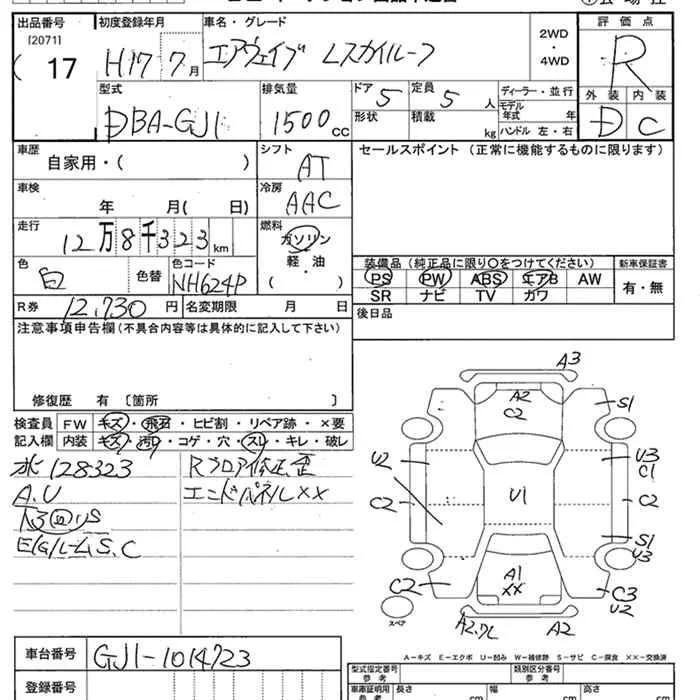 出品番号 初度登録年月 車名・グレード 評価点
[2071] 17 H17 7月 エアウェイブ Lスカイルーフ 2WD・4WD R
型式 排気量 ドア 定員 ディーラー・並行 外装 内装
DBA-GJ1 1500cc 5 5人 モデル年式 年 D C
形状 積載 kg ハンドル 左・右
車歴 シフト セールスポイント (正常に機能するものに限ります)
自家用・( ) AT
車検 冷房
年 月( 日) AAC
走行 燃料
12万8千323km ガソリン
軽・油
( )
色 色コード 装備品 (純正品に限り○をつけてください) 新車保証書
白 色替 NH624P PS PW ABS エアB AW 有・無
SR ナビ TV カワ
R券 12,730円 名変期限 月 日 後日品
注意事項申告欄(不具合内容等は具体的に記入して下さい)
修復歴 有 〔箇所 〕
検査員 FW キズ・飛石・ヒビ割・リペア跡・×要
記入欄 内装 キズ・汚れ・コゲ・穴・スレ・キレ・破レ
128323
A.U
S.C
Rフロア修正歪
エンドパネル××
A3
A2
C2
S1
U2
U3
C1
C2
U1
C2
S1
U3
A1
××
C2
C3
U2
スペア
A2
A2
A−キズ E−エクボ U−凹み W−補修跡 S−サビ C−腐食 ××−交換済
車台番号 GJ1-1014723
登録番号
型式指定番号 参考 類別区分番号 参考
車庫証明用 参考 長さ cm 幅 cm 高さ cm